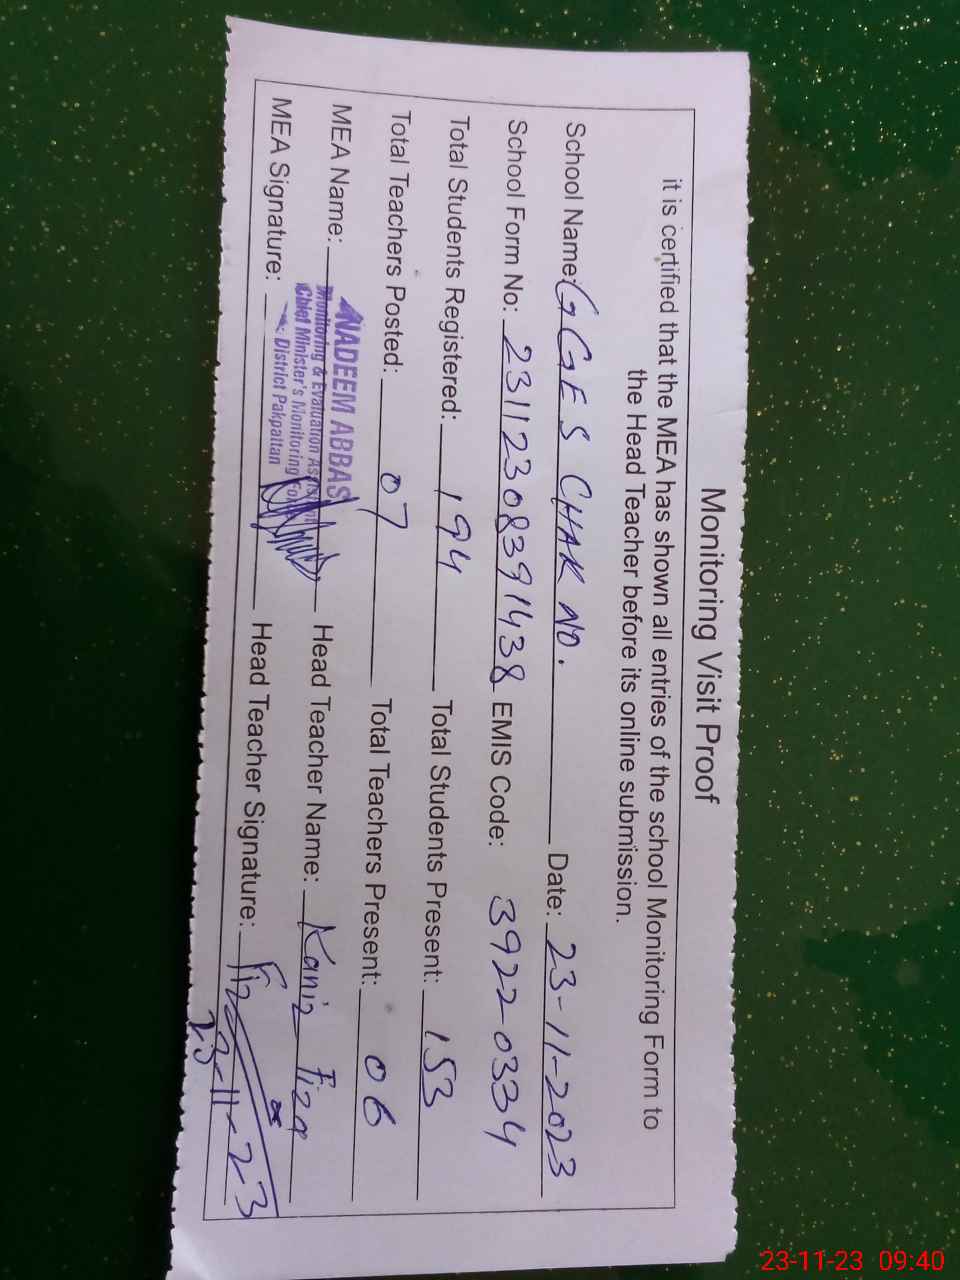 Monitoring Visit Proof
it is certified that the MEA has shown all entries of the school Monitoring Form to
the Head Teacher before its online submission.
School Name: GGES CHAK NO. Date: 23-11-2023
School Form No: 23112308391438 EMIS Code: 39220334
Total Students Registered: 194 Total Students Present: 153
Total Teachers Posted: 07 Total Teachers Present: 06
MEA Name: NADEEM ABBAS Head Teacher Name: Kaniz Fiza
Monitoring & Evaluation Assistant
Chief Minister's Monitoring Force
District Pakpattan
MEA Signature: Head Teacher Signature: Fiza
23-11-23
23-11-23 09:40